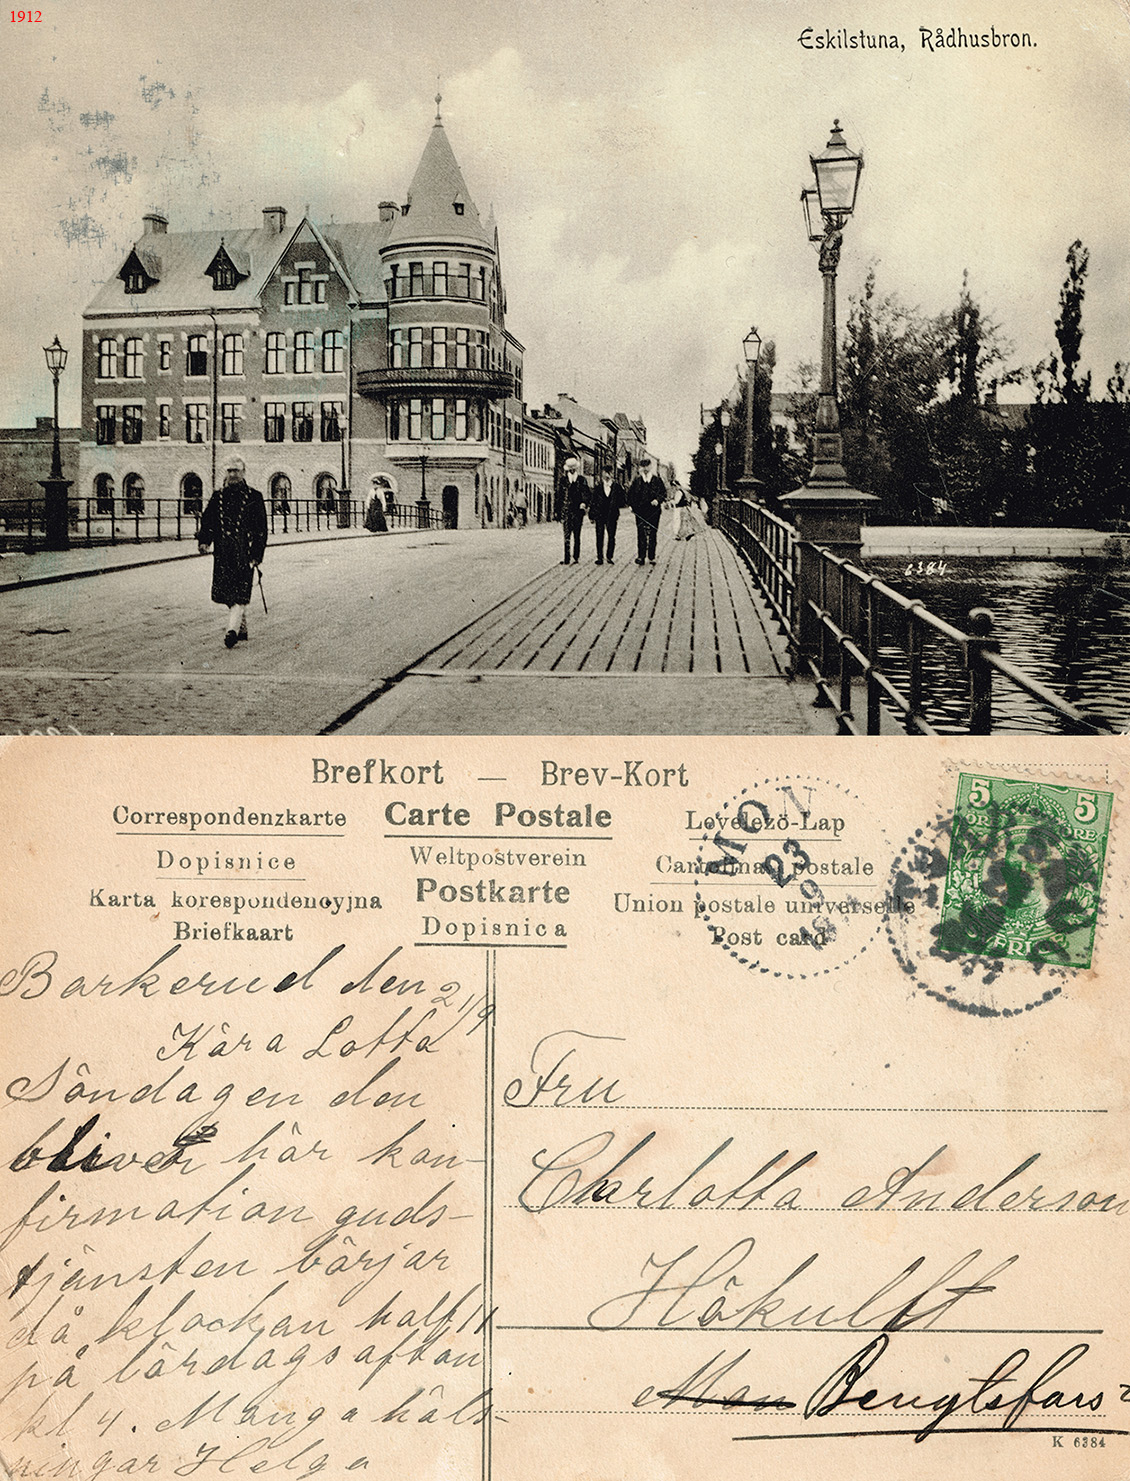 1912
Eskilstuna, Rådhusbron.
6384
Brefkort — Brev-Kort
Correspondenzkarte
Carte Postale
Levelező-Lap
Dopisnice
Weltpostverein
Cartolina postale
Karta korespondencyjna
Postkarte
Union postale universelle
Briefkaart
Dopisnica
Post card
MON
23
9
5 5
ÖRE
Barkerud den 21/9
Kära Lotta
Söndagen den
blivet här kon-
firmation guds-
tjänsten börjar
då klockan half 11
på lördags afton
kl 4. Många häls-
ningar Helga
Fru
Charlotta Anderson
Hökullft
Mon Bengtsfors
K 6384